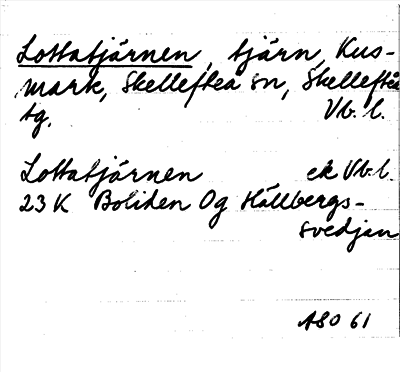 Lottatjärnen, tjärn, Kus-
mark, Skellefteå sn, Skellefteå
tg. Vb. l.
Lottatjärnen ek Vb. l.
23 K Boliden Og Hällbergs-
svedjan
ASO 61